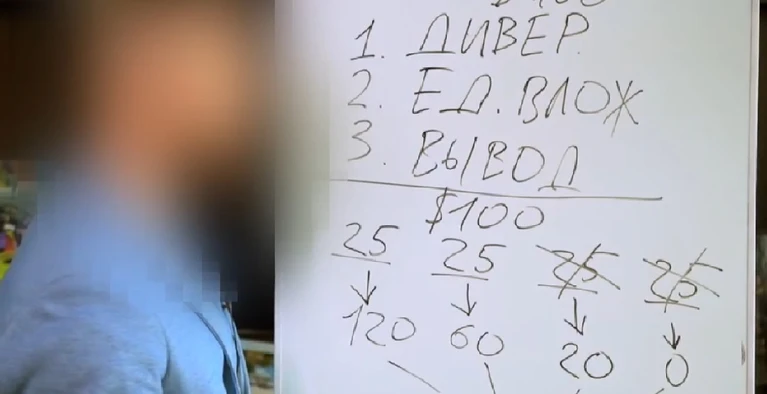 1. ДИВЕР.
2. ЕД. ВЛОЖ
3. ВЫВОД
$100
25 25 25 25
120 60 20 0